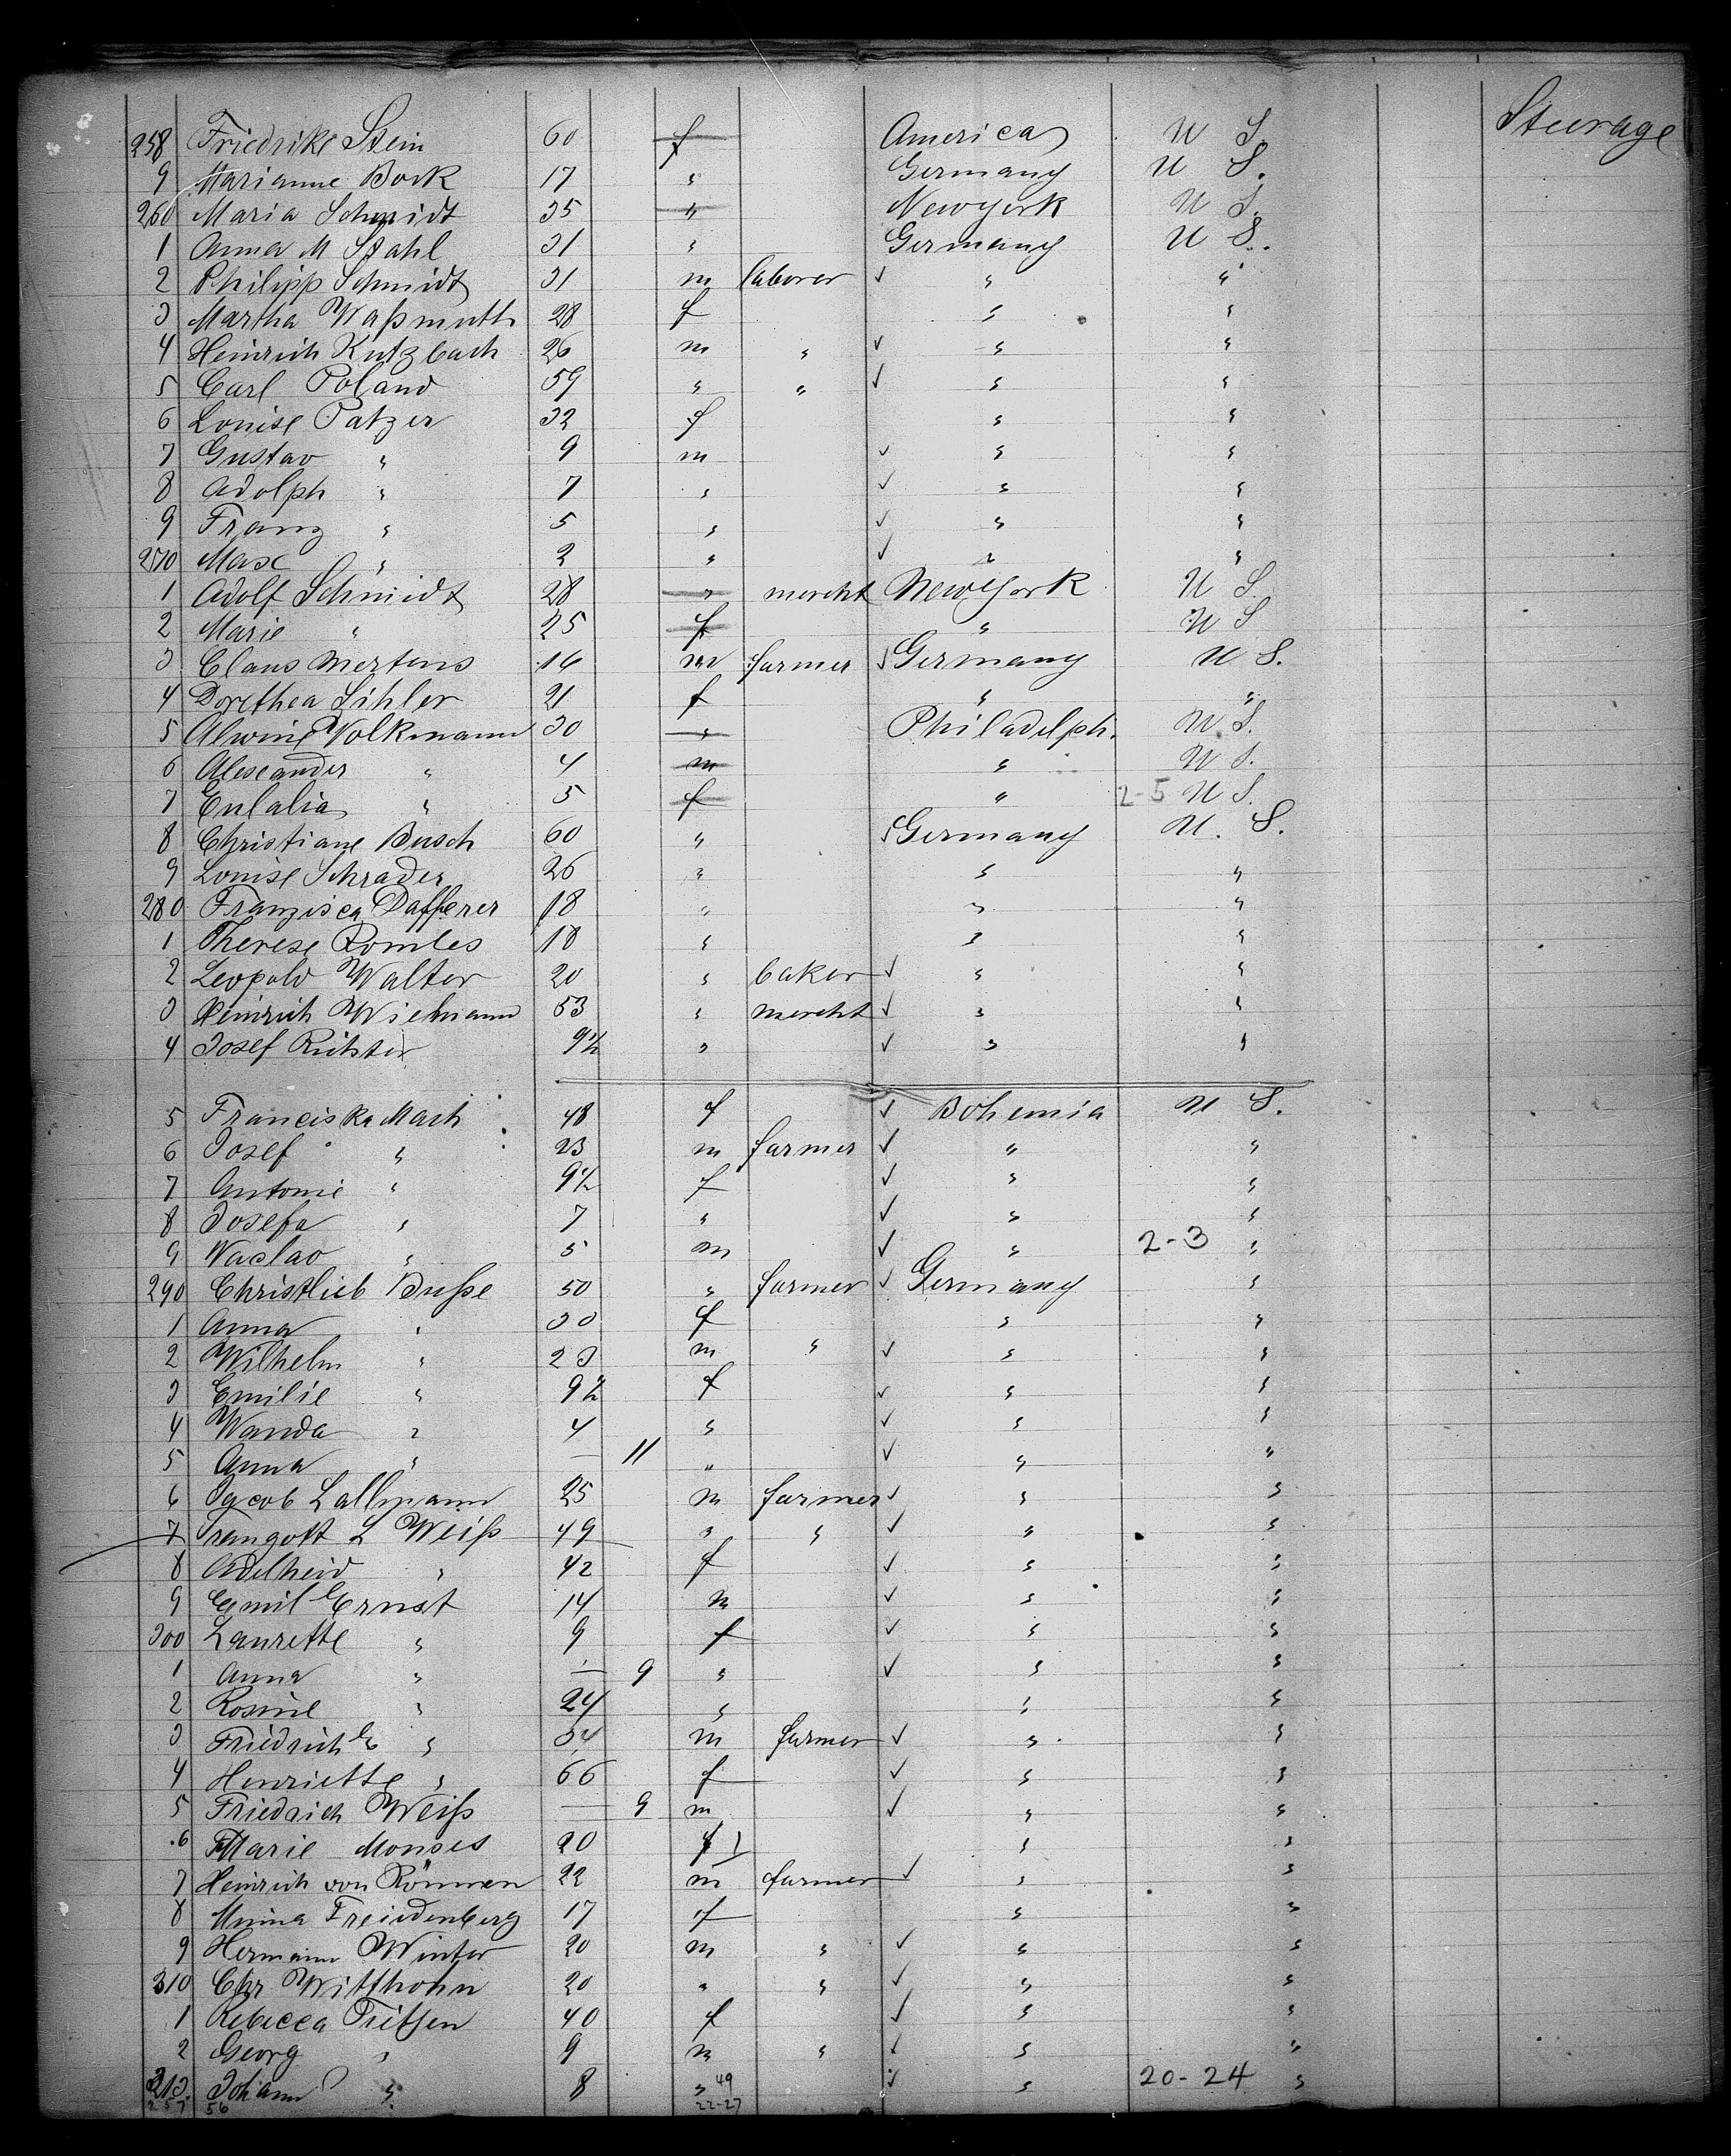 Steerage
258 Friedrike Stein 60 f America U S.
9 Marianne Bock 17 " Germany U S.
260 Maria Schmidt 35 " Newyork U S.
1 Anna M Stahl 31 " Germany U S.
2 Philipp Schmidt 31 m laborer ✓ " "
3 Martha Waßmuth 28 f " "
4 Heinrich Kutzbach 26 m " ✓ " "
5 Carl Poland 59 " " ✓ " "
6 Louise Patzer 32 f " "
7 Gustav " 9 m ✓ " "
8 Adolph " 7 " ✓ " "
9 Franz " 5 " ✓ " "
270 Max " 2 " ✓ " "
1 Adolf Schmidt 28 " mercht NewYork U S.
2 Marie " 25 f " U S
3 Claus Mertens 16 m farmer ✓ Germany U S.
4 Dorethea Sihler 21 f " "
5 Alwine Volkmann 30 " Philadelph. U. S.
6 Alexander " 4 m " U S.
7 Eulalia " 5 f " 2-5 U S.
8 Christiane Busch 60 " ✓ Germany U. S.
9 Louise Schrader 26 " " "
280 Franzisca Dafferer 18 " " "
1 Therese 18 " " "
2 Leopold Walter 20 " baker ✓ " "
3 Heinrich Wiemann 53 " mercht ✓ " "
4 Josef Richter 9½ " ✓ " "
5 Franciska Mach 48 f ✓ Bohemia U S.
6 Josef " 23 m farmer ✓ " "
7 Antonie " 9½ f ✓ " "
8 Josefa " 7 " ✓ " "
9 Waclav " 5 m ✓ " 2-3 "
290 Christlieb Buße 50 " farmer ✓ Germany "
1 Anna " 30 f " "
2 Wilhelm " 23 m " ✓ " "
3 Emilie " 9½ f ✓ " "
4 Wanda " 4 " ✓ " "
5 Anna " — 11 " ✓ " "
6 Jacob Lallmann 25 m farmer ✓ " "
7 Traugott L Weiß 49 " " ✓ " "
8 Adelheid " 42 f ✓ " "
9 Emil Ernst 14 m ✓ " "
300 Laurette " 9 f ✓ " "
1 Anna " — 9 " ✓ " "
2 Rosine " 24 " " "
3 Friedrich E " 34 m farmer ✓ " "
4 Henriette " 66 f ✓ " "
5 Friedrich Weiß — 9 m ✓ " "
6 Marie Monses 20 f " "
7 Heinrich von Rönnen 22 m farmer ✓ " "
8 Minna Freudenberg 17 f " "
9 Hermann Winter 20 m " ✓ " "
310 Chr Witthohn 20 " " ✓ " "
1 Rebecca Tietjen 40 f ✓ " "
2 Georg " 9 m " ✓ " "
313. Johann " 8 " 49 ✓ " 20-24 "
257 56 22-27